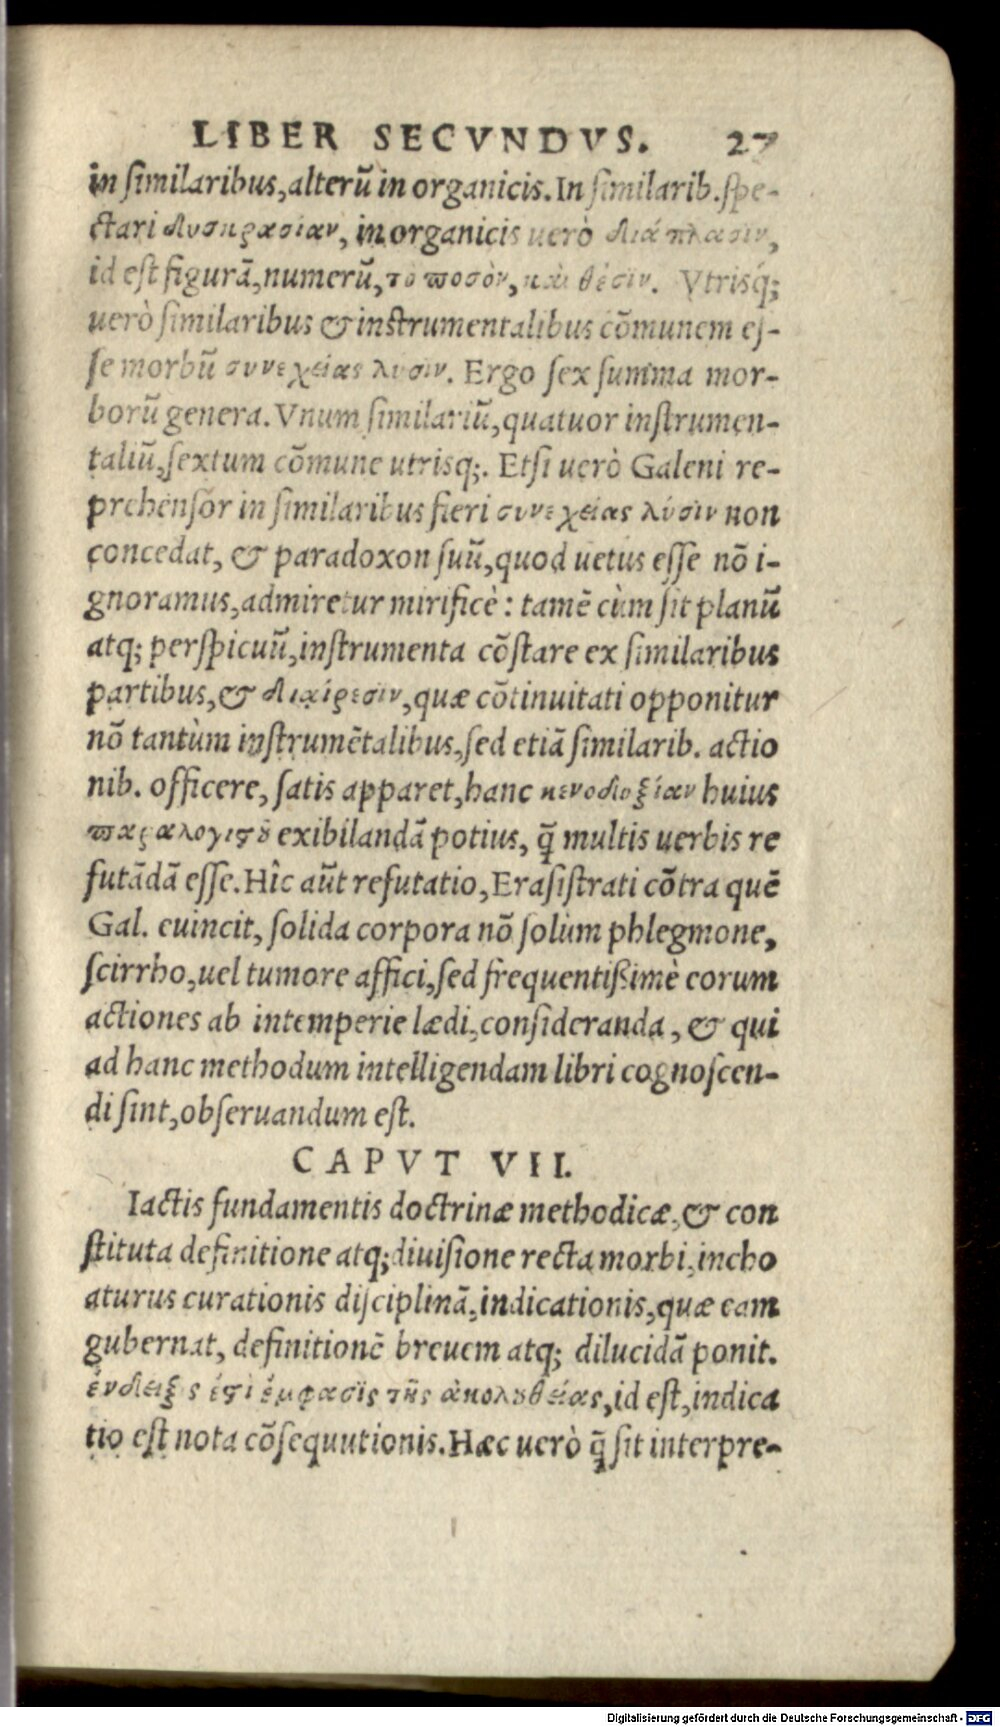 LIBER SECVNDVS. 27
in similaribus, alterũ in organicis. In similarib. spe-
ctari δυσκρασίαν, in organicis uerò διάπλασιν,
id est figurã, numerũ, τὸ ποσὸν, καὶ θέσιν. Vtrisq́;
uerò similaribus & instrumentalibus cõmunem es-
se morbũ συνεχείας λύσιν. Ergo sex summa mor-
borũ genera. Vnum similariũ, quatuor instrumen-
taliũ, sextum cõmune utrisq;. Etsi uerò Galeni re-
prehensor in similaribus fieri συνεχείας λύσιν non
concedat, & paradoxon suũ, quod uetus esse nõ i-
gnoramus, admiretur mirificè: tamẽ cùm sit planũ
atq; perspicuũ, instrumenta cõstare ex similaribus
partibus, & διαίρεσιν, quæ cõtinuitati opponitur
nõ tantùm instrumẽtalibus, sed etiã similarib. actio
nib. officere, satis apparet, hanc κενοδοξίαν huius
παραλογιςοῦ exibilandã potius, q̃ multis uerbis re
futãdã esse. Hîc aũt refutatio, Erasistrati cõtra quẽ
Gal. euincit, solida corpora nõ solùm phlegmone,
scirrho, uel tumore affici, sed frequentißimè eorum
actiones ab intemperie lædi, consideranda, & qui
ad hanc methodum intelligendam libri cognoscen-
di sint, obseruandum est.
CAPVT VII.
Iactis fundamentis doctrinæ methodicæ, & con
stituta definitione atq; diuisione recta morbi, incho
aturus curationis disciplinã, indicationis, quæ eam
gubernat, definitionẽ breuem atq; dilucidã ponit.
ἔνδειξις ἐςὶ ἔμφασις τῆς ἀκολουθείας, id est, indica
tio est nota cõsequutionis. Hæc uerò q̃ sit interpre-
Digitalisierung gefördert durch die Deutsche Forschungsgemeinschaft - DFG